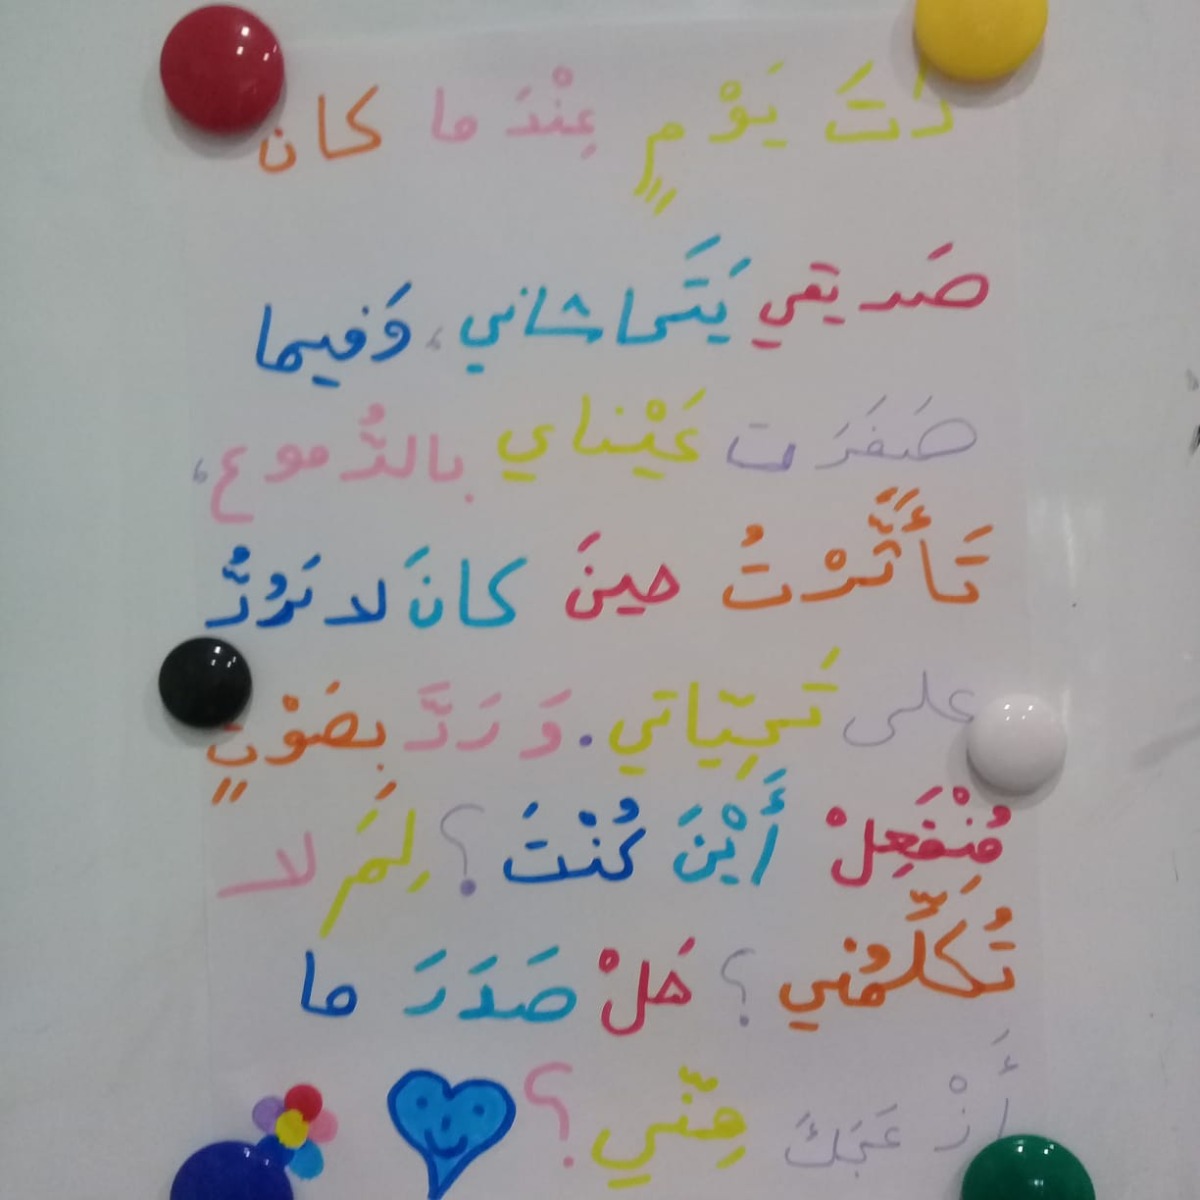 ذَاتَ يَوْمٍ عِنْدَ ما كان
صَديقي يَتَحاشاني، وَفيما
صَفَرَت عَيْناي بالدُّموع،
تَأَثَّرْتُ حينَ كانَ لا يَرُدُّ
على تَحِيّاتي. وَ رَدَّ بِصَوْتٍ
مُنْفَعِلْ أَيْنَ كُنْتَ؟ لِمَ لا
تُكَلِّمُني؟ هَلْ صَدَرَ ما
أَزْعَجَكَ مِنّي؟